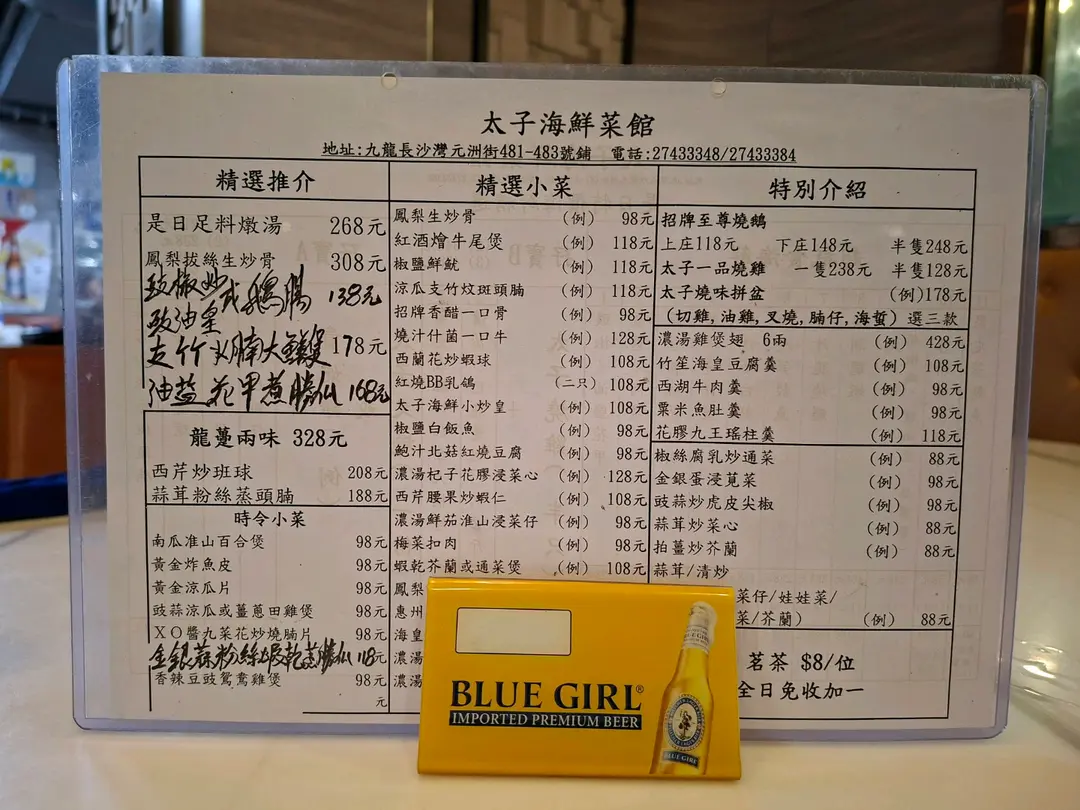 太子海鮮菜館
地址:九龍長沙灣元洲街481-483號鋪 電話:27433348/27433384
精選推介
是日足料燉湯 268元
鳳梨拔絲生炒骨 308元
豉椒炒
豉油皇 式鵝腸 138元
支竹火腩大鱔煲 178元
油鹽花甲煮勝仙 168元
龍躉兩味 328元
西芹炒班球 208元
蒜茸粉絲蒸頭腩 188元
時令小菜
南瓜淮山百合煲 98元
黃金炸魚皮 98元
黃金涼瓜片 98元
豉蒜涼瓜或薑蔥田雞煲 98元
XO醬九菜花炒燒腩片 98元
金銀蒜粉絲蝦乾蒸勝仙 118元
香辣豆豉鴛鴦雞煲 98元
元
精選小菜
鳳梨生炒骨 (例) 98元
紅酒燴牛尾煲 (例) 118元
椒鹽鮮魷 (例) 118元
涼瓜支竹炆斑頭腩 (例) 118元
招牌香醋一口骨 (例) 98元
燒汁什菌一口牛 (例) 128元
西蘭花炒蝦球 (例) 108元
紅燒BB乳鴿 (二只) 108元
太子海鮮小炒皇 (例) 108元
椒鹽白飯魚 (例) 98元
鮑汁北菇紅燒豆腐 (例) 98元
濃湯杞子花膠浸菜心 (例) 128元
西芹腰果炒蝦仁 (例) 108元
濃湯鮮茄淮山浸菜仔 (例) 98元
梅菜扣肉 (例) 98元
蝦乾芥蘭或通菜煲 (例) 108元
鳳梨
惠州
海皇
濃湯
濃湯
特別介紹
招牌至尊燒鵝
上庄118元 下庄148元 半隻248元
太子一品燒雞 一隻238元 半隻128元
太子燒味拼盆 (例)178元
(切雞,油雞,叉燒,腩仔,海蜇) 選三款
濃湯雞煲翅 6兩 (例) 428元
竹笙海皇豆腐羹 (例) 108元
西湖牛肉羹 (例) 98元
粟米魚肚羹 (例) 98元
花膠九王瑤柱羹 (例) 118元
椒絲腐乳炒通菜 (例) 88元
金銀蛋浸莧菜 (例) 98元
豉蒜炒虎皮尖椒 (例) 98元
蒜茸炒菜心 (例) 88元
拍薑炒芥蘭 (例) 88元
蒜茸/清炒
菜仔/娃娃菜/
菜/芥蘭) (例) 88元
茗茶 $8/位
全日免收加一
BLUE GIRL®
IMPORTED PREMIUM BEER
BLUE GIRL
BLUE GIRL